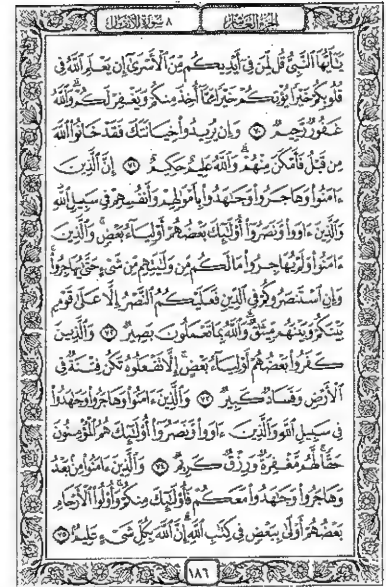 الجزء العاشر ٨ سورة الأنفال
يَٰٓأَيُّهَا ٱلنَّبِىُّ قُل لِّمَن فِىٓ أَيْدِيكُم مِّنَ ٱلْأَسْرَىٰٓ إِن يَعْلَمِ ٱللَّهُ فِى
قُلُوبِكُمْ خَيْرًا يُؤْتِكُمْ خَيْرًا مِّمَّآ أُخِذَ مِنكُمْ وَيَغْفِرْ لَكُمْ ۗ وَٱللَّهُ
غَفُورٌ رَّحِيمٌ ٧٠ وَإِن يُرِيدُوا۟ خِيَانَتَكَ فَقَدْ خَانُوا۟ ٱللَّهَ
مِن قَبْلُ فَأَمْكَنَ مِنْهُمْ ۗ وَٱللَّهُ عَلِيمٌ حَكِيمٌ ٧١ إِنَّ ٱلَّذِينَ
ءَامَنُوا۟ وَهَاجَرُوا۟ وَجَٰهَدُوا۟ بِأَمْوَٰلِهِمْ وَأَنفُسِهِمْ فِى سَبِيلِ ٱللَّهِ
وَٱلَّذِينَ ءَاوَوا۟ وَّنَصَرُوٓا۟ أُو۟لَٰٓئِكَ بَعْضُهُمْ أَوْلِيَآءُ بَعْضٍ ۚ وَٱلَّذِينَ
ءَامَنُوا۟ وَلَمْ يُهَاجِرُوا۟ مَا لَكُم مِّن وَلَٰيَتِهِم مِّن شَىْءٍ حَتَّىٰ يُهَاجِرُوا۟ ۚ
وَإِنِ ٱسْتَنصَرُوكُمْ فِى ٱلدِّينِ فَعَلَيْكُمُ ٱلنَّصْرُ إِلَّا عَلَىٰ قَوْمٍۭ
بَيْنَكُمْ وَبَيْنَهُم مِّيثَٰقٌ ۗ وَٱللَّهُ بِمَا تَعْمَلُونَ بَصِيرٌ ٧٢ وَٱلَّذِينَ
كَفَرُوا۟ بَعْضُهُمْ أَوْلِيَآءُ بَعْضٍ ۚ إِلَّا تَفْعَلُوهُ تَكُن فِتْنَةٌ فِى
ٱلْأَرْضِ وَفَسَادٌ كَبِيرٌ ٧٣ وَٱلَّذِينَ ءَامَنُوا۟ وَهَاجَرُوا۟ وَجَٰهَدُوا۟
فِى سَبِيلِ ٱللَّهِ وَٱلَّذِينَ ءَاوَوا۟ وَّنَصَرُوٓا۟ أُو۟لَٰٓئِكَ هُمُ ٱلْمُؤْمِنُونَ
حَقًّا ۚ لَّهُم مَّغْفِرَةٌ وَرِزْقٌ كَرِيمٌ ٧٤ وَٱلَّذِينَ ءَامَنُوا۟ مِنۢ بَعْدُ
وَهَاجَرُوا۟ وَجَٰهَدُوا۟ مَعَكُمْ فَأُو۟لَٰٓئِكَ مِنكُمْ ۚ وَأُو۟لُوا۟ ٱلْأَرْحَامِ
بَعْضُهُمْ أَوْلَىٰ بِبَعْضٍ فِى كِتَٰبِ ٱللَّهِ ۗ إِنَّ ٱللَّهَ بِكُلِّ شَىْءٍ عَلِيمٌۢ ٧٥
١٨٦